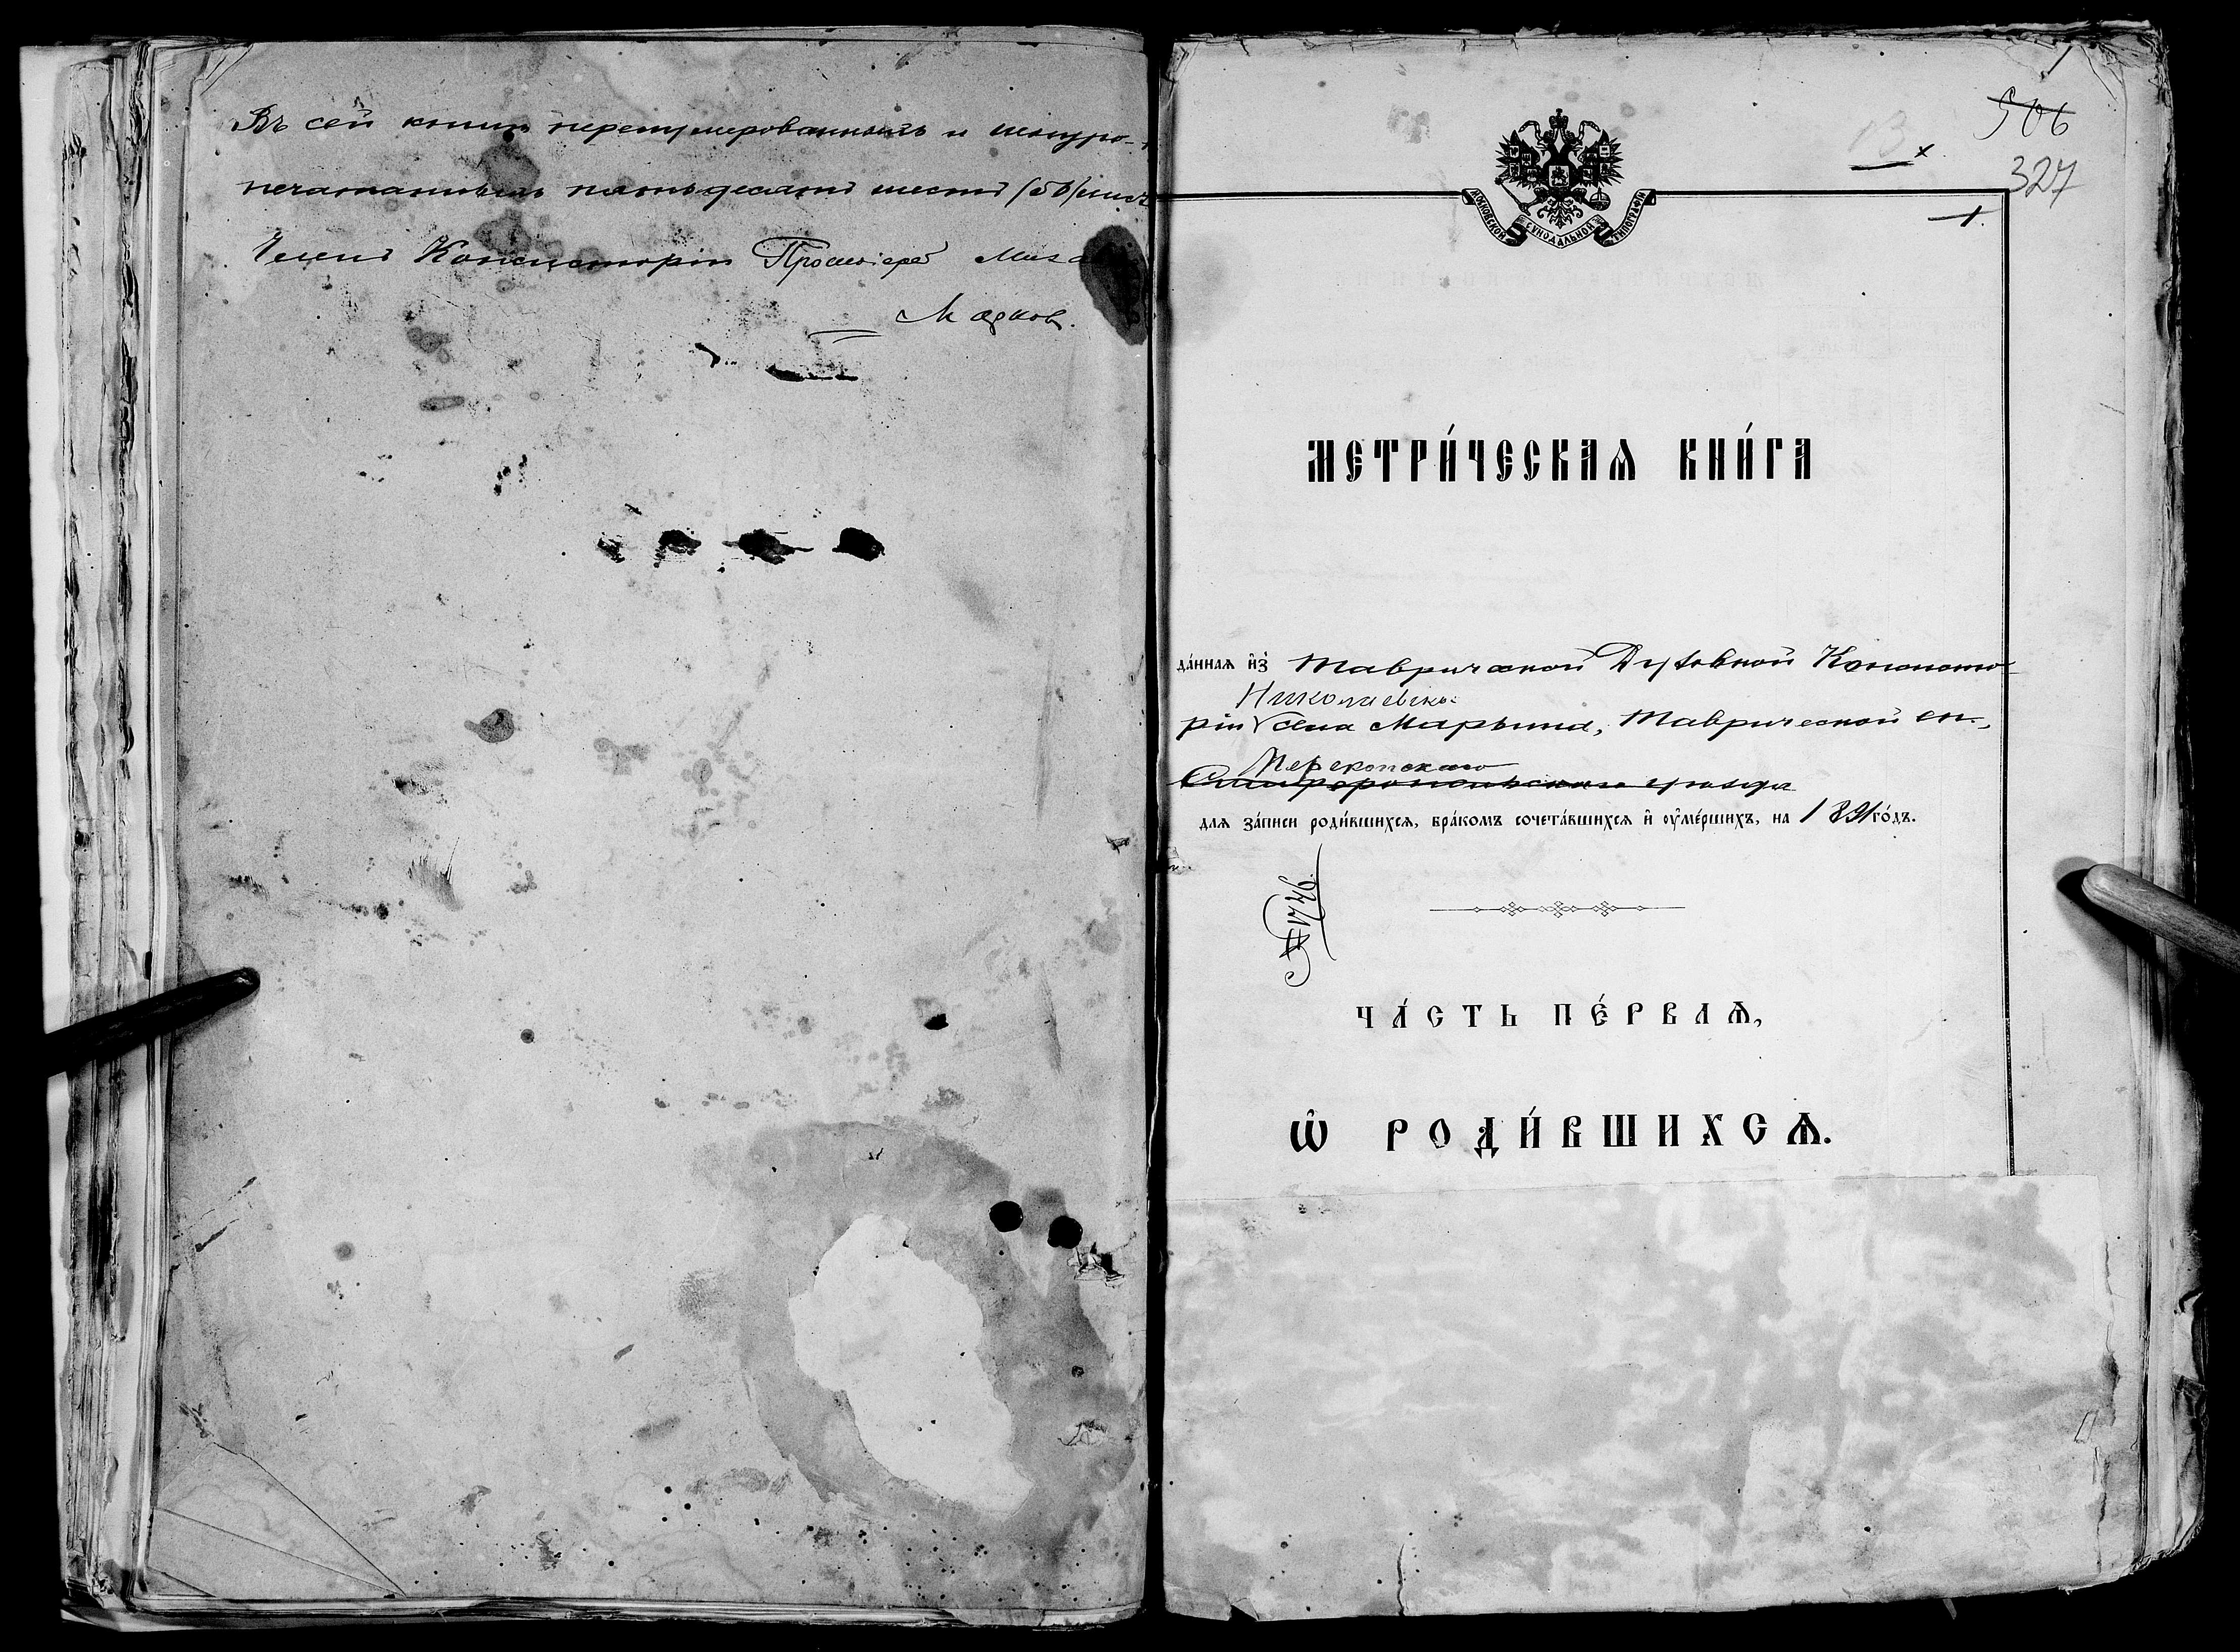 Въ сей книгѣ перенумерованныхъ и шнуро-
печатанныхъ пятьдесятъ шесть (56) лист
Членъ Консисторіи Протоіерей Миха
506
327
МОСКОВСКОЙ СѴНОДАЛЬНОЙ ТИПОГРАФІИ
МЕТРИ́ЧЕСКАѦ КНИ́ГА
да́ннаѧ и҆з̾ Таврической Духовной Консисто-
Николаевск.
ріи села Марьина, Таврической еп.,
Перекопскаго
Симферопольскаго уѣзда
длѧ за́писи роди́вшихсѧ, бра́комъ сочета́вшихсѧ и҆ ᲂу҆ме́ршихъ, на 1891 го́дъ.
№ 1746.
ЧА́СТЬ ПЕ́РВАѦ,
Ѡ҆ РОДИ́ВШИХСѦ.